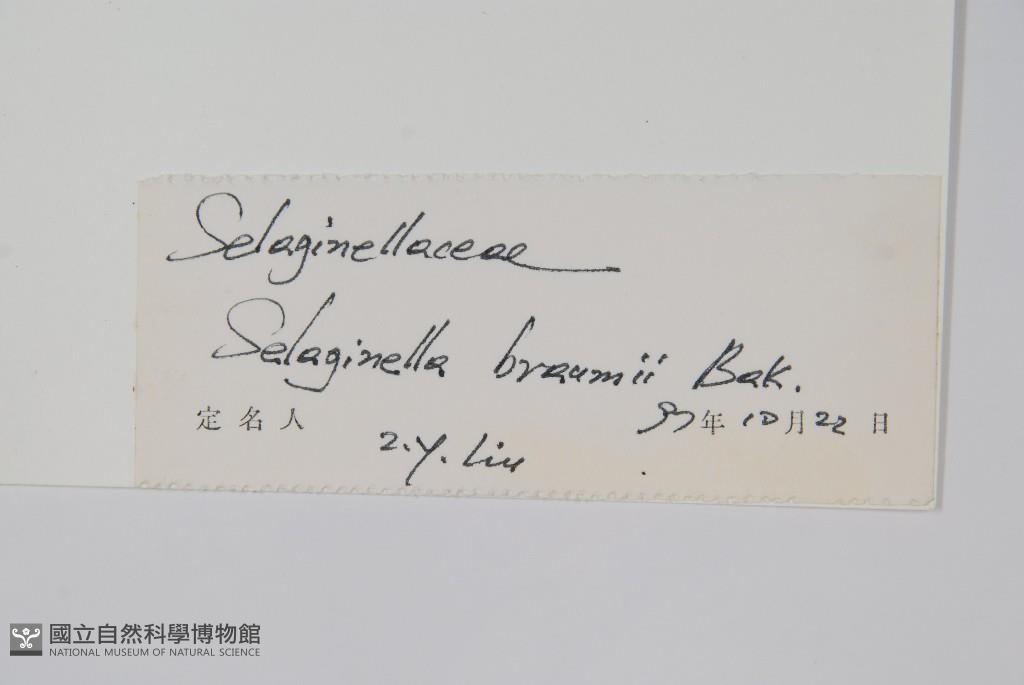 Selaginellaceae
Selaginella braumii Bak.
定名人 97年10月22日
Z.Y. Liu
國立自然科學博物館
NATIONAL MUSEUM OF NATURAL SCIENCE